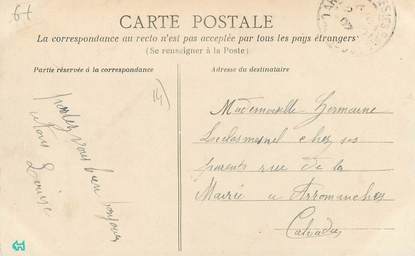 64
CARTE POSTALE
La correspondance au recto n'est pas acceptée par tous les pays étrangers
(Se renseigner à la Poste)
Partie réservée à la correspondance
Adresse du destinataire
14
portez vous bien toujours
Louise
Mademoiselle Germaine
chez ses
parents rue de la
Mairie a Arromanches
Calvados